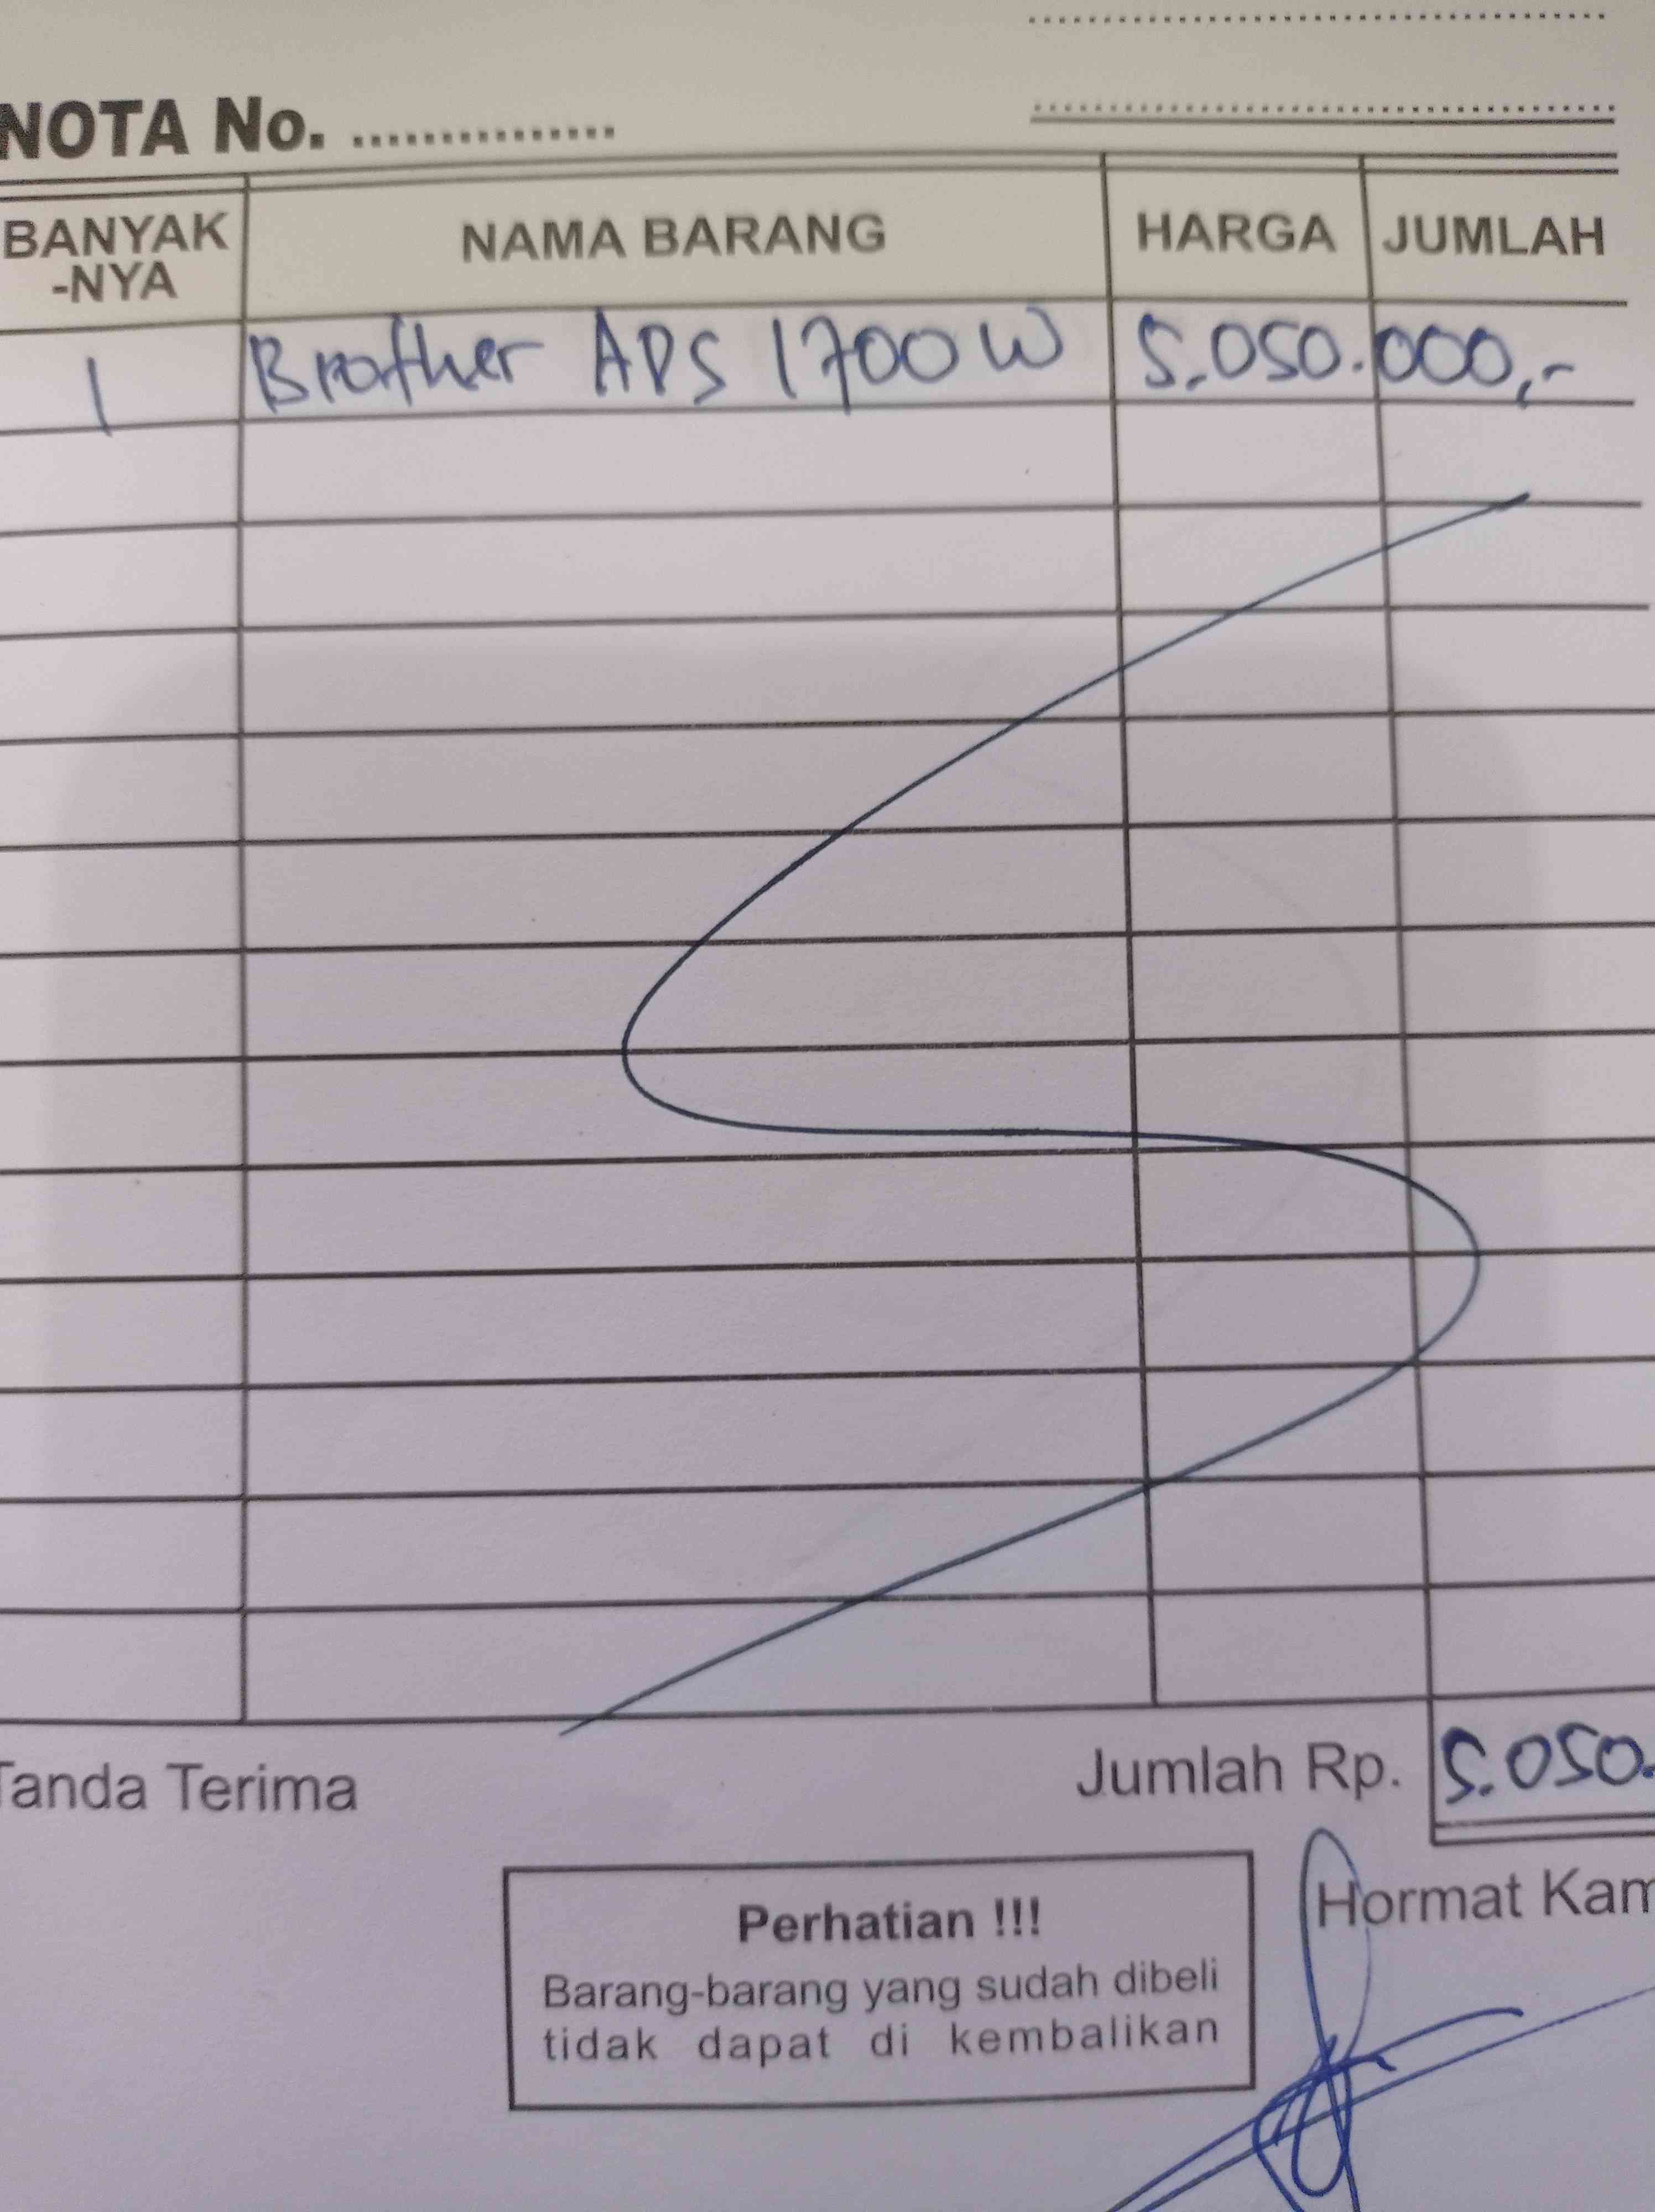 NOTA No. ...............
BANYAK
-NYA
NAMA BARANG
HARGA
JUMLAH
1 Brother ADS 1700 W 5.050.000,-
Tanda Terima
Jumlah Rp. 5.050.
Perhatian !!!
Hormat Kam
Barang-barang yang sudah dibeli
tidak dapat di kembalikan